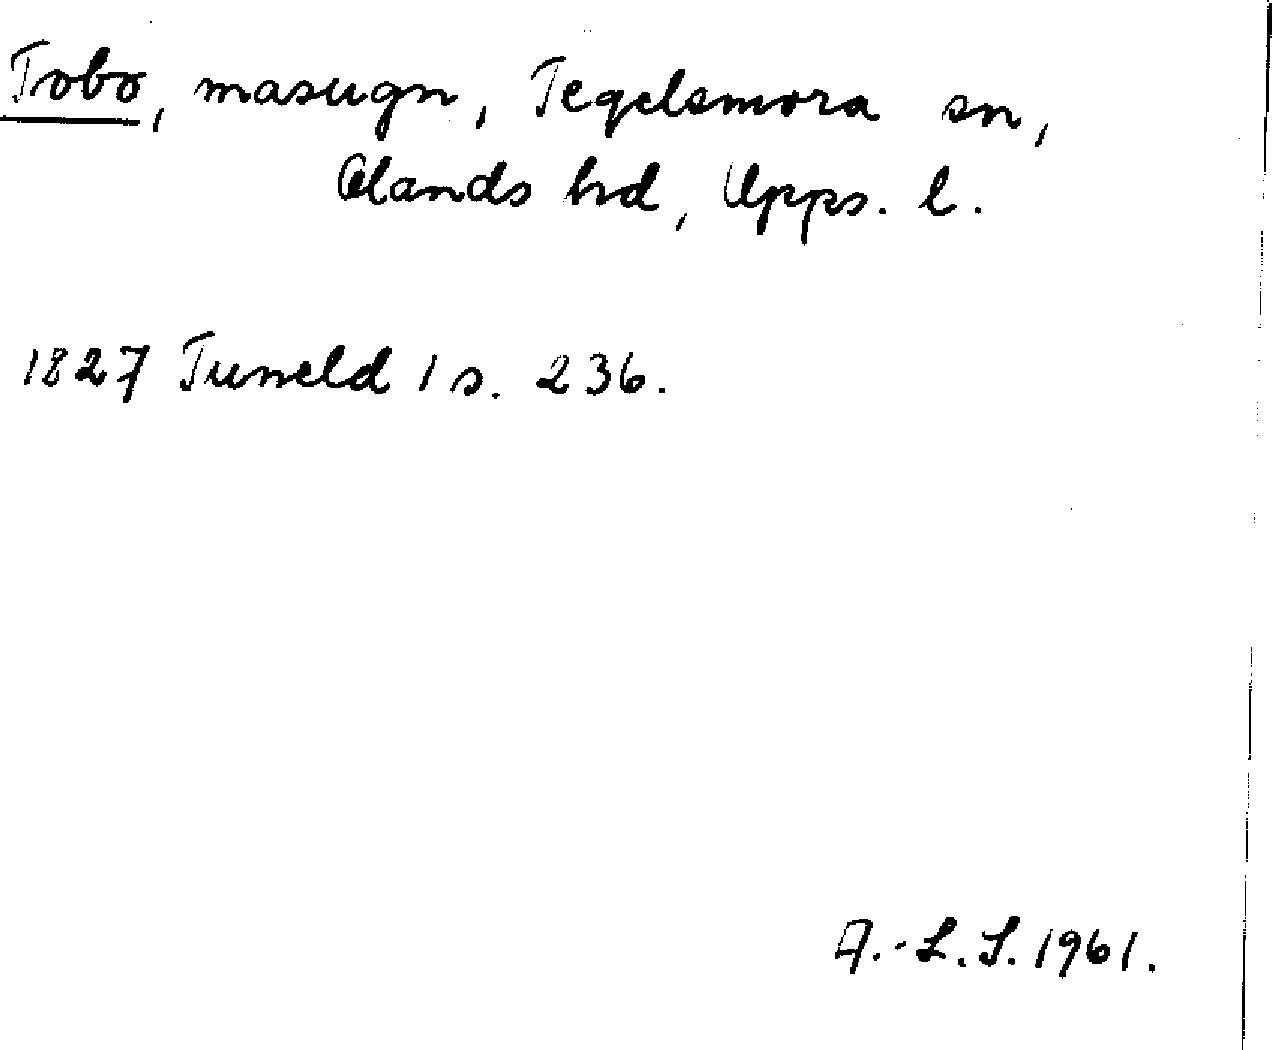 Tobo, masugn, Tegelsmora sn,
Olands hd, Upps. l.
1827 Tuneld 1 s. 236.
A.-L.S. 1961.